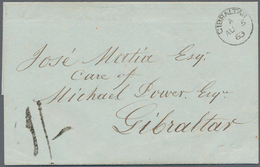 GIBRALTAR
A
AU 5
63
José Martin Esqr.
Care of
Michael Power Esqre
Gibraltar
1/-